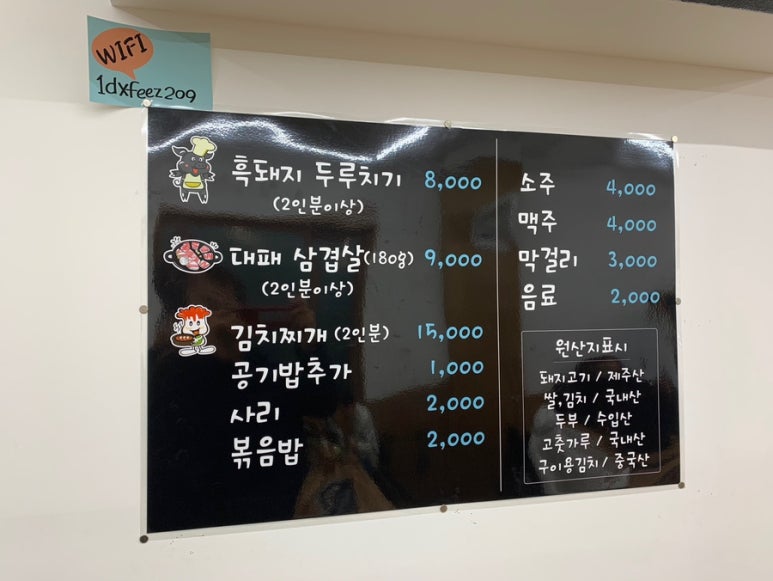 WIFI
1dxfeez209
흑돼지 두루치기 8,000
(2인분이상)
대패 삼겹살(180g) 9,000
(2인분이상)
김치찌개 (2인분) 15,000
공기밥추가 1,000
사리 2,000
볶음밥 2,000
소주 4,000
맥주 4,000
막걸리 3,000
음료 2,000
원산지표시
돼지고기 / 제주산
쌀,김치 / 국내산
두부 / 수입산
고춧가루 / 국내산
구이용김치 / 중국산